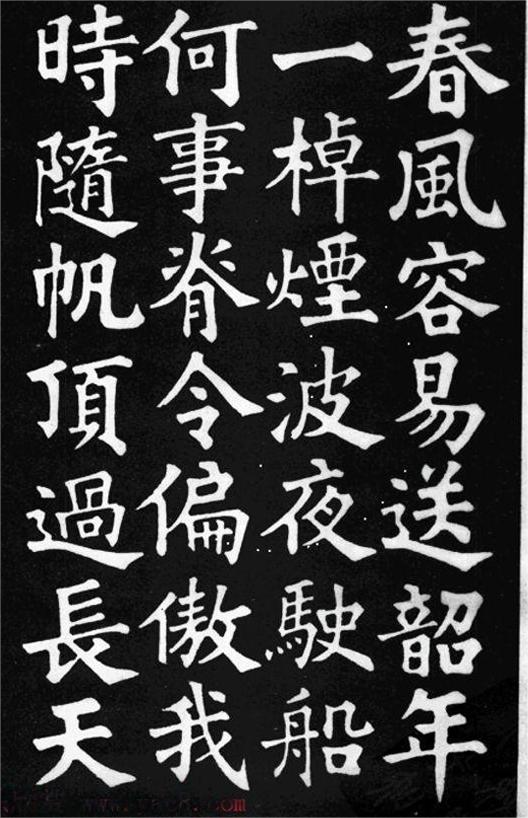 春風容易送韶年
一棹煙波夜駛船
何事脊令偏傲我
時隨帆頂過長天